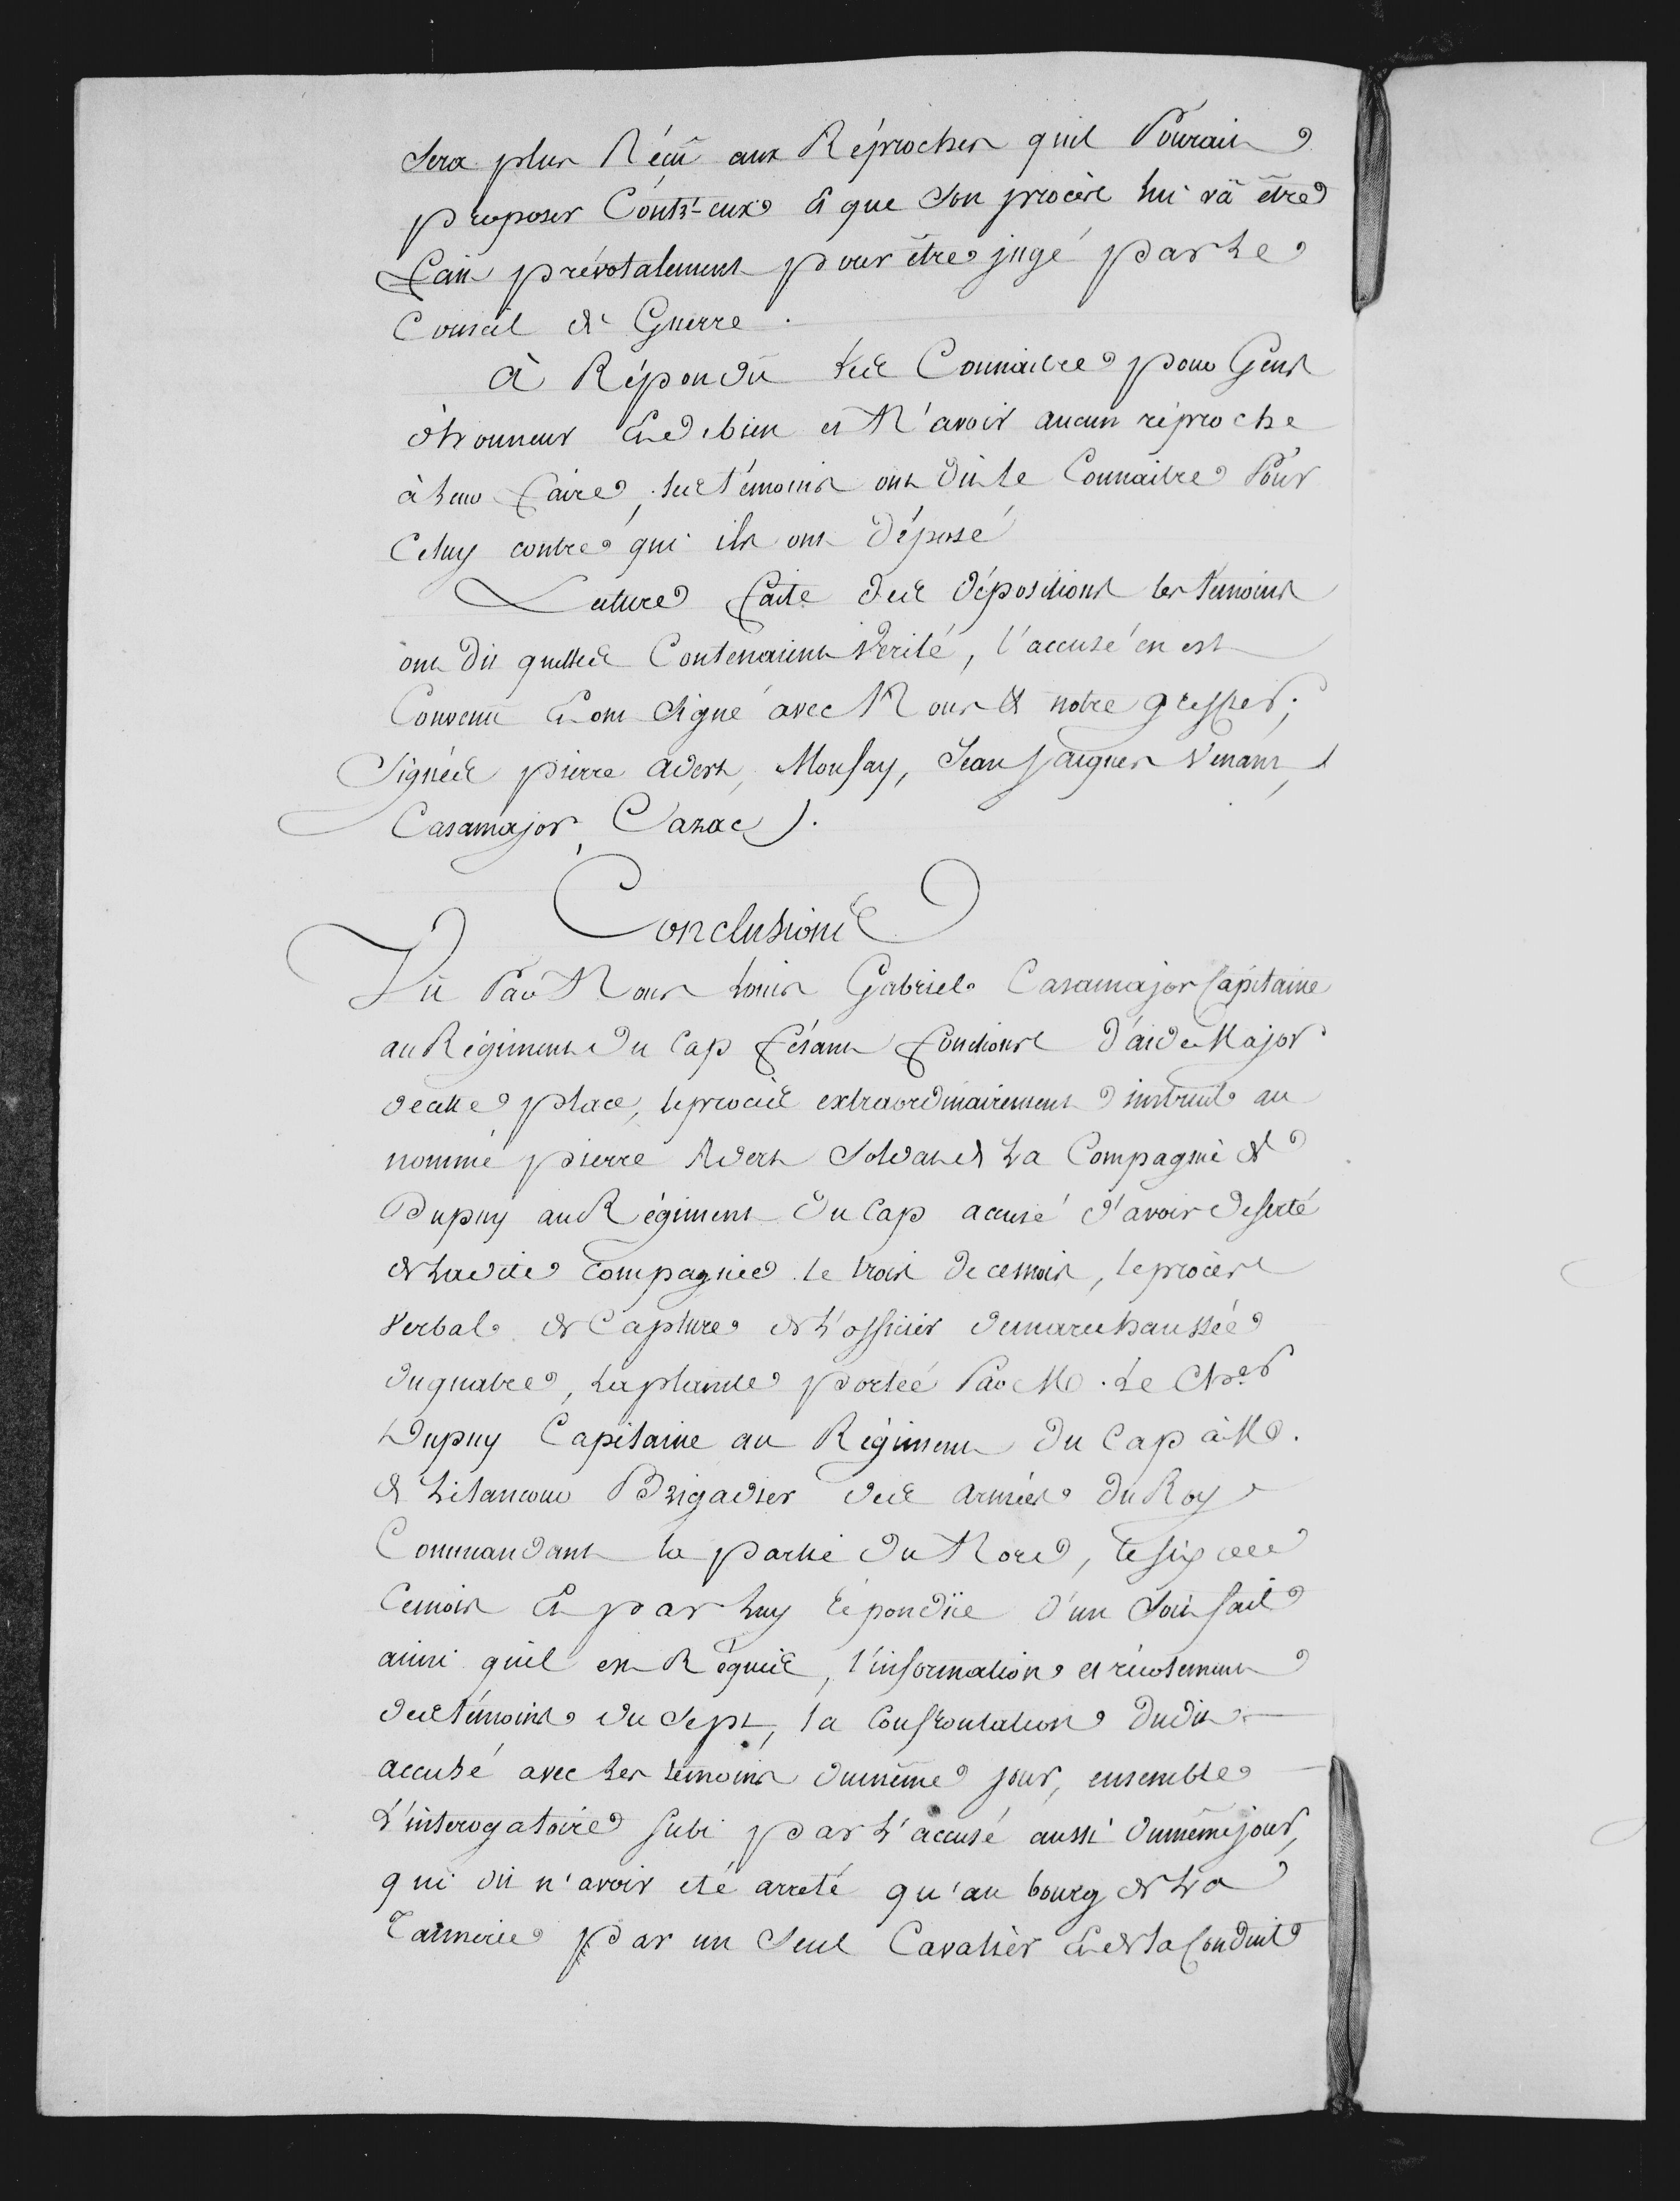 Sera plus Réçû aux Réproches qu'il Pourait
proposer Contr'-eux et que Son procès lui vã être
fait prévotalement pour être jugé par Le
Conseil de Guerre.
A Répondû Les Connaitre pour Gens
d'honneur Et de bien et N'avoir aucun réproche
à Leur faire, les témoins ont dit le Connaitre Pour
Celuy contre qui ils ont déposé
Lecture faite des dépositions les temoins
ont dit quelles Contenaient Verité, l'accusé en est
Convenu Et ont Signé avec Nous & notre greffier;
Signées pierre Advert, Monfay, Jean Venant,
Casamajor, Cazac).
Conclusions
Vû Par Nous Louis Gabriel Casamajor Capitaine
au Régiment du Cap fesant fonctions d'aide Major
de cette place, le procès extraordinairement instruit au
nommé pierre Advert Soldat de La Compagnie de
Dupuy au Régiment du Cap accusé d'avoir deserté
de Ladite Compagnie le trois de ce mois, le procès
Verbal de Capture de L'officier de marechaussée
du quatre, La plainte portée Par M. Le Cher
Dupuy Capitaine au Régiment du Cap à M.
de Lilancour Brigadier des armées du Roy
Commandant la partie du Nord, le six de
Ce mois Et par Luy répondüe d'un Soit fait
ainsi qu'il est Réquis, l'information et récolement
des témoins du Sept, la Confrontation dudit
accusé avec Les temoins du même jour, ensemble
L'interogatoire subi par L'accusé aussi du même jour,
qui dit n'avoir été arreté qu'au bourg de La
Tannerie par un Seul Cavalier Et de la Conduit